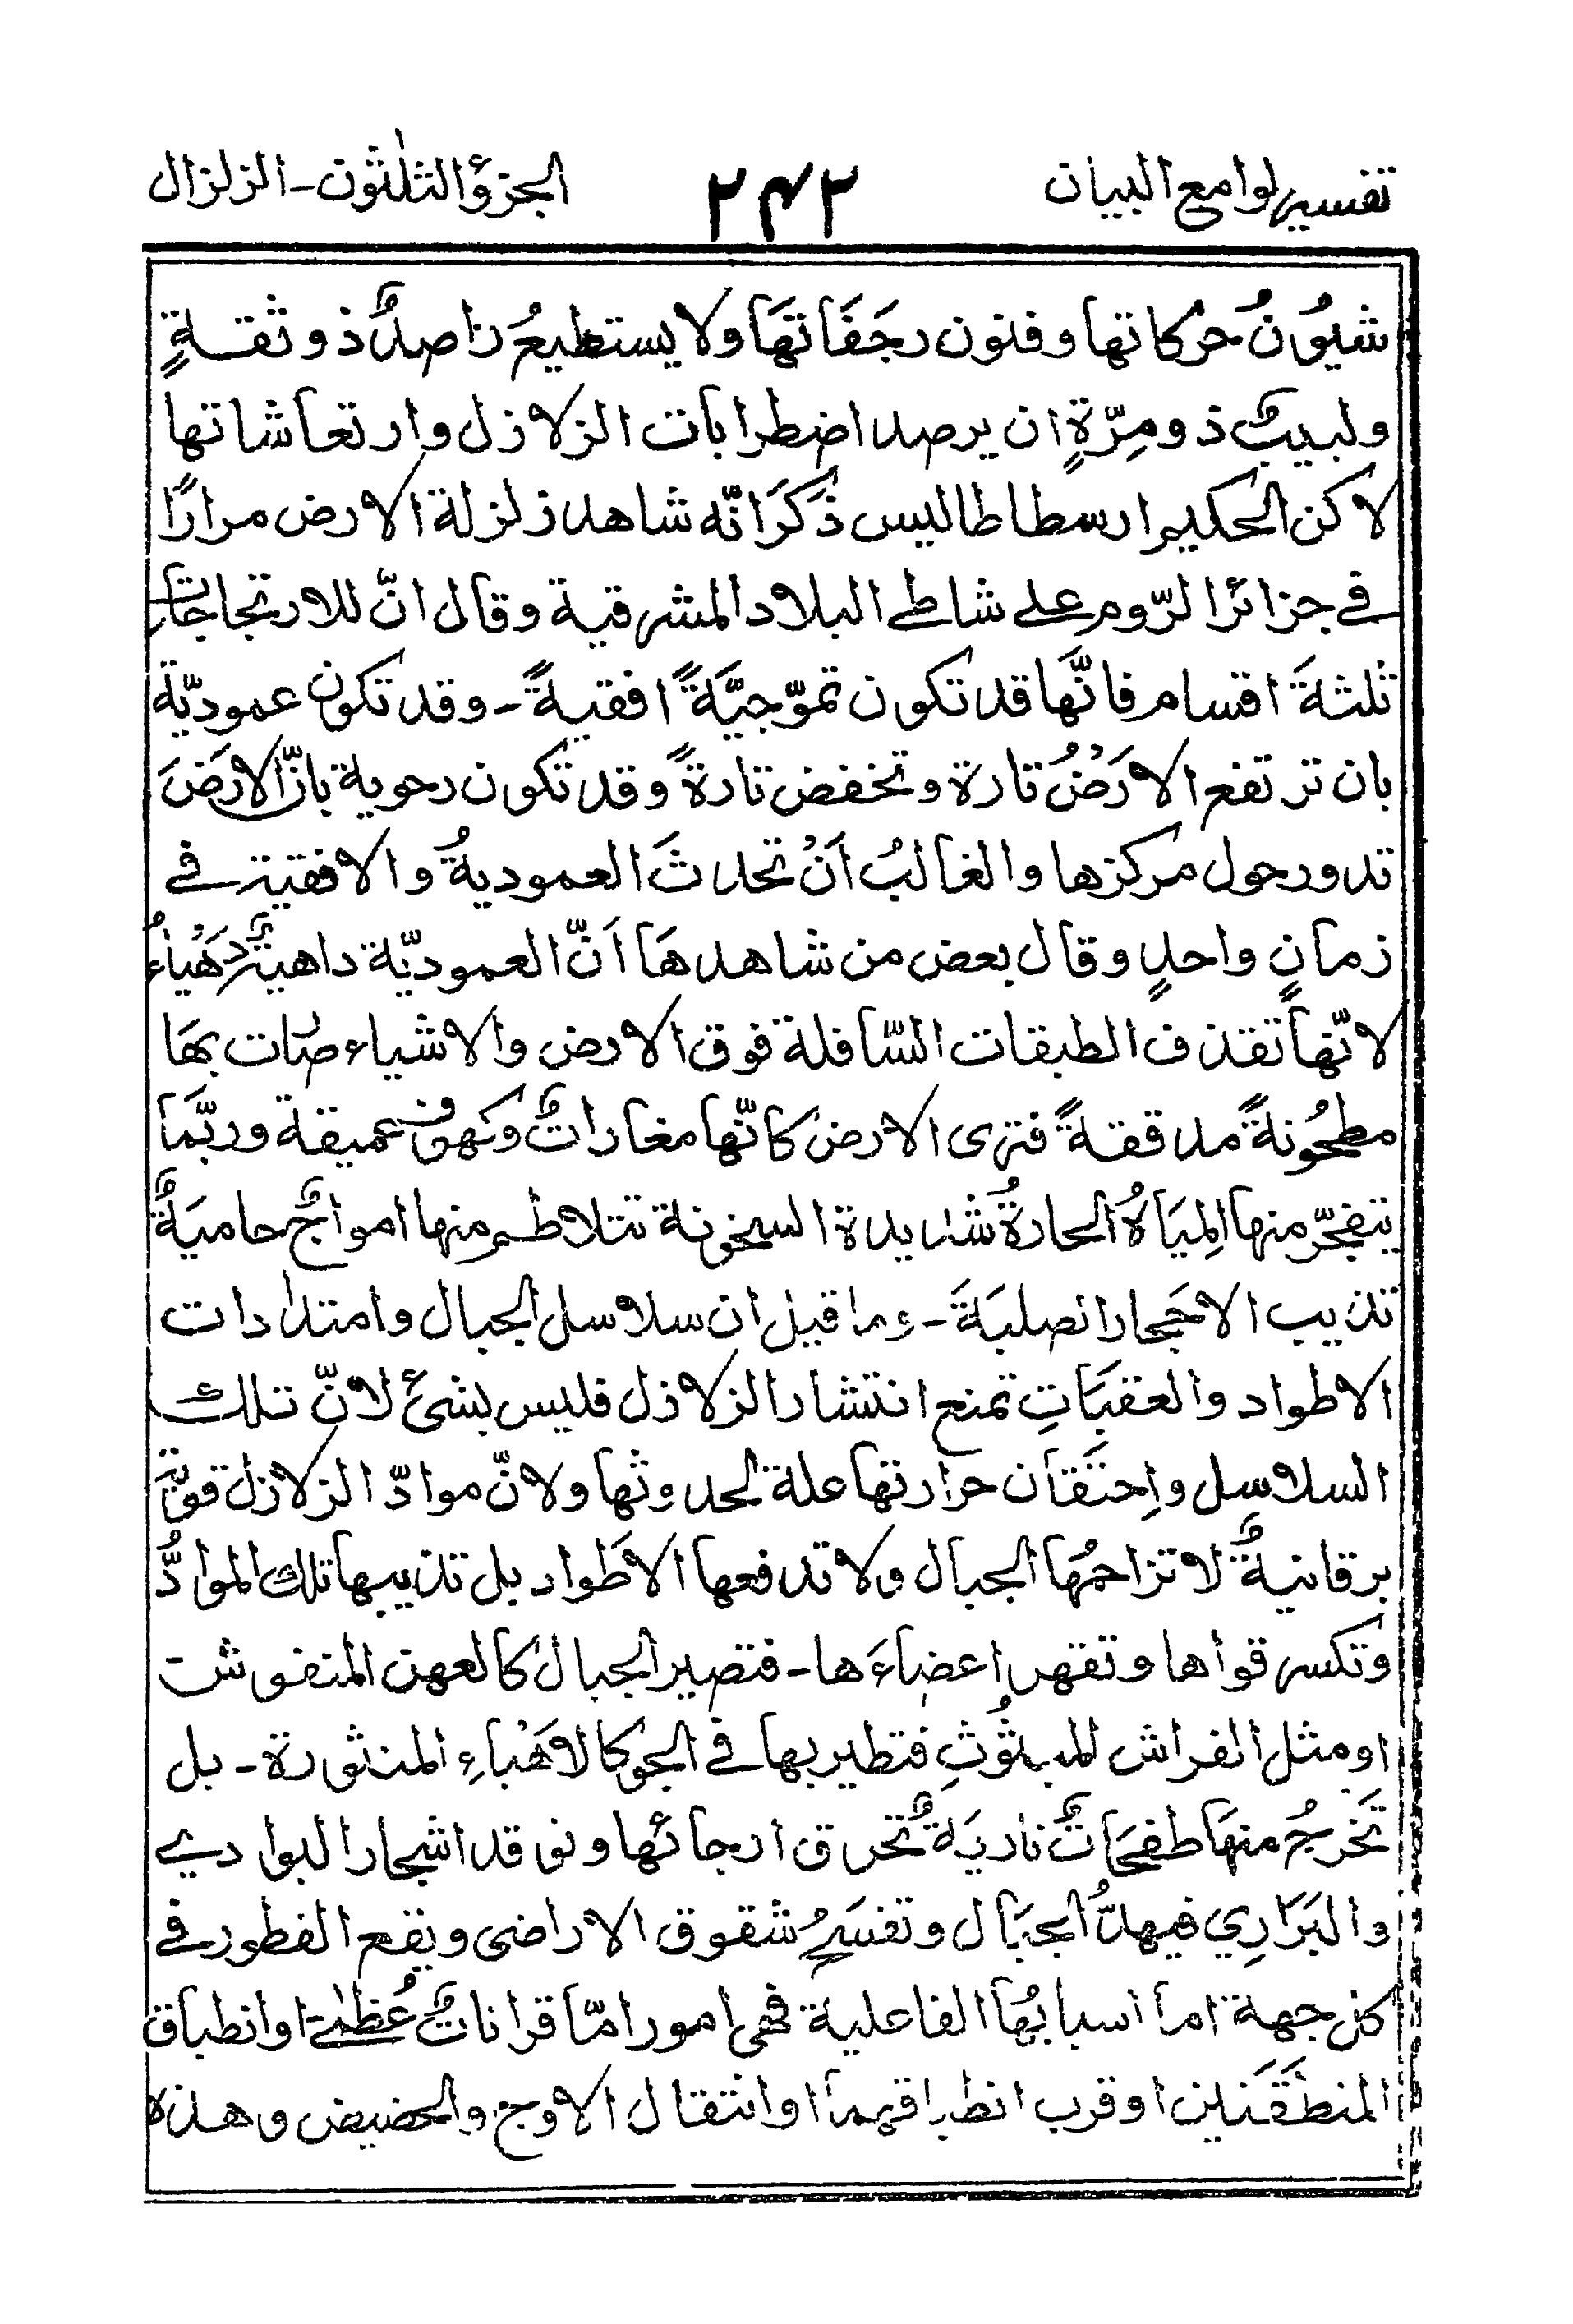 تفسير لوامع البيان ٢٤٢ الجزؤ الثلٰثون - الزلزال
شيُونُ حركاتها وفنون رجَفَاتهَا ولا يستطيعُ راصدٌ ذو ثقةٍ
ولبيبٌ ذو مِرّةٍ ان يرصد اضطرابات الزلازل وارتعاشاتها
لاكن الحكيم ارسطاطاليس ذكَرَ انّه شاهد زلزلة الارض مرارًا
في جزائر الرّوم علے شاطے البلاد المشرقية وقال انّ للارتجاجات
ثلثةَ اقسام فانَّها قد تكون تموّجيَّةً افقيةً - وقد تكون عموديّة
بان ترتفع الارَضُ تارة وتخفض تارةً وقد تكون رحوية بانّ الارضَ
تدور حول مركزها والغالبُ اَنْ تحدثَ العموديةُ والافقية في
زمانٍ واحدٍ وقال بعض من شاهدهَا اَنّ العموديّة داهيةٌ دَهْيَاءُ
لانّها تقذف الطبقات السّافلة فوق الارض والاشياء صَات بهَا
مطحُونةً مدققةً فترى الارض كانّها مغاراتٌ وكهوف عميقة وربّما
يتفجّر منها المِيَاهُ الحارةُ شديدة السخونة تتلاطم منها امواجٌ حاميَةٌ
تذيب الاحَجار الصلبَةَ - وما قيل ان سلاسل الجبال وامتدادات
الاطواد والعقبَاتِ تمنع انتشار الزلازل فليس بشئ لانّ تلك
السلاسل واِحتَقان حرارتها علة لحدوثها ولانّ موادّ الزلازل قويّةٌ
برقانيةٌ لا تزاحمُها الجبال ولا تدفعها الاَطواد بل تذيبها تلك الموادُّ
وتكسر قواها وتقهر اعضاءَها - فتصير الجبال كالعهن المنفوش
او مثل الفراش المبثُوثِ فتطير بها في الجو كالاَهْباءِ المنثورة - بل
تَخرجُ منهَا طفحَاتٌ ناريَةٌ تحرق ارجائها وتوقد اشجار البوادي
والبَرَارِي فيهدُّ الجبَال وتفسَحُ شقوق الاراضى ويقع الفطور في
كل جهة اما اسبابُها الفاعلية فهى امور امّا قراناتٌ عُظمٰے او انطباق
المنطَقَتين او قرب انطباقهما او انتقال الاوج والحضيض وهذه